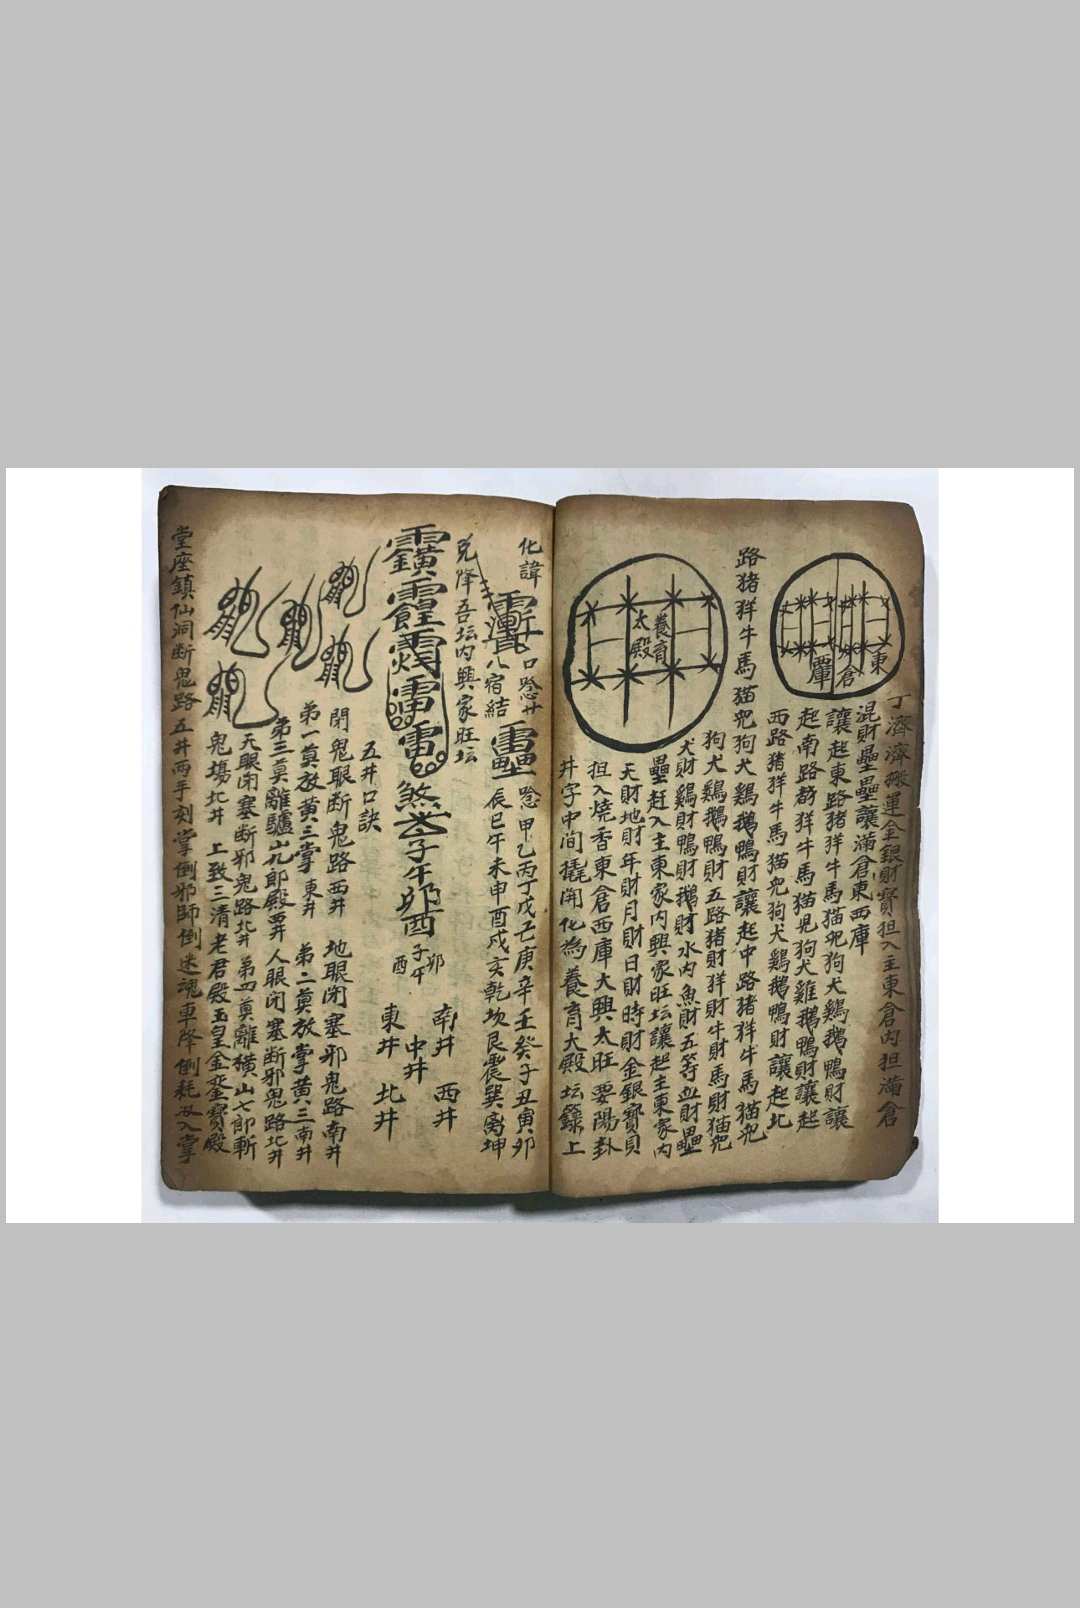 東
倉
丁濟濟搬運金銀財寶担入主東倉內担滿倉
混財壘壘讓滿倉東西庫
讓起東路猪牛馬猫兕狗犬鷄鵝鴨財讓
起南路猪牛馬猫兕狗犬雞鵝鴨財讓起
西路猪牛馬猫兕狗犬鷄鵝鴨財讓起北
路猪牛馬猫兕狗犬鷄鵝鴨財讓起中路猪牛馬猫兕
狗犬鷄鵝鴨財五路猪財財牛財馬財猫兕
犬財鷄財鴨財鵝財水內魚財五等血財壘
壘赶入主東家內興家旺坛讓起主東家內
養育
太殿
天財地財年財月財日財時財金銀寶貝
担入燒香東倉西庫大興太旺要陽卦
井字中间撬開化為養育大殿坛籙上
化諱
口唸廿
八宿結
唸甲乙丙丁戊己庚辛壬癸子丑寅卯
辰巳午未申酉戌亥乾坎艮震巽离坤
兕降吾坛內興家旺坛
煞
子午卯酉
子午
卯
酉
南井
西井
中井
東井
北井
五井口訣
閉鬼眼断鬼路西井
地眼闭塞邪鬼路南井
弟一奠放黄三掌東井
弟二奠放掌黄三南井
弟三奠離驢山九郎殿西井
人眼闭塞断邪鬼路北井
天眼闭塞断邪鬼路北井
弟四奠離横山七郎斬
鬼塲北井
上致三清老君殿玉皇金銮寶殿
堂座鎮仙洞断鬼路五井两手刻掌倒邪師倒迷魂車降倒耗及入掌